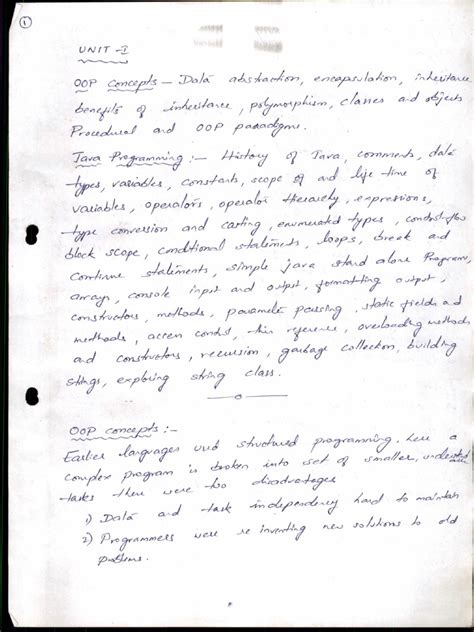 1
UNIT - I
OOP Concepts - Data abstraction, encapsulation, inheritance
benefits of inheritance, polymorphism, classes and objects
Procedural and OOP paradigms.
Java Programming :- History of Java, comments, data
types, variables, constants, scope of and life time of
variables, operators, operator hierarchy, expressions,
type conversion and casting, enumerated types, control-flow
block scope, conditional statements, loops, break and
continue statements, simple java stand alone Programs,
arrays, console input and output, formatting output,
constructors, methods, parameter passing, static fields and
methods, access control, this reference, overloading methods
and constructors, recursion, garbage collection, building
strings, exploring string class.
OOP concepts :-
Earlier languages used structured programming, here a
complex program is broken into set of smaller,
tasks there were two disadvantages
1) Data and task independency hard to maintain
2) Programmers were re inventing new solutions to old
problems.